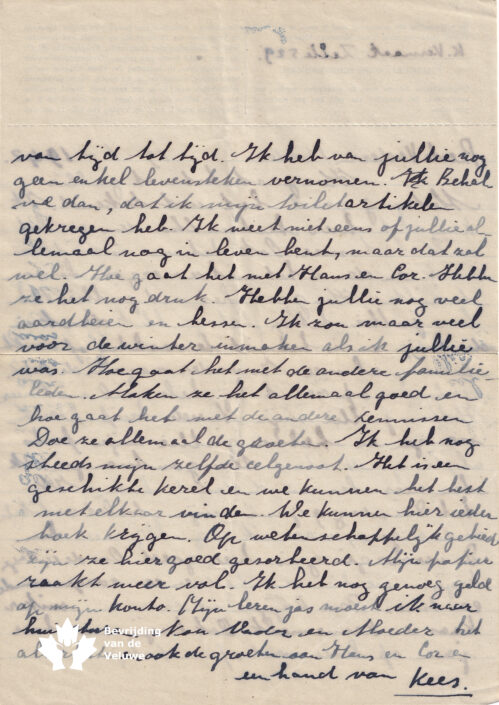 K. Vermaat Zelle 529.
van tijd tot tijd. Ik heb van jullie nog
geen enkel levensteken vernomen.
ve dan, dat ik mijn toiletartikelen
gekregen heb. Ik weet niet eens of jullie al
lemaal nog in leven bent, maar dat zal
wel. Hoe gaat het met Hans en Cor. Hebben
ze het nog druk. Hebben jullie nog veel
aardbeien en bessen. Ik zou maar veel
voor de winter inmaken als ik jullie
was. Hoe gaat het met de andere familie-
leden. Maken ze het allemaal goed en
hoe gaat het met de andere kennissen
Doe ze allemaal de groeten. Ik heb nog
steeds mijn zelfde celgenoot. Het is een
geschikte kerel en we kunnen het best
met elkaar vinden. We kunnen hier ieder
boek krijgen. Op wetenschappelijk gebied
zijn ze hier goed gesorteerd. Mijn papier
raakt weer vol. Ik heb nog genoeg geld
op mijn konto. Mijn leren jas moest ik naar
Nou Vader en Moeder het
ook de groeten aan Hans en Cor en
een hand van Kees.
Bevrijding
van de
Veluwe